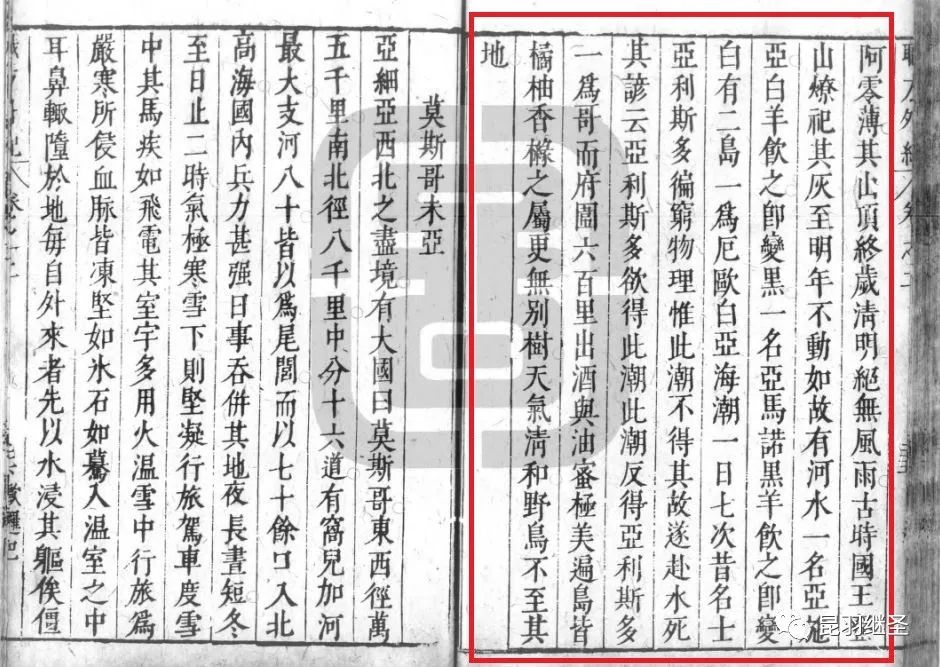 阿零薄其山頂終歲淸明絕無風雨古時國王登
山燎祀其灰至明年不動如故有河水一名亞施
亞白羊飲之卽變黑一名亞馬諾黑羊飲之卽變
白有二島一爲厄歐白亞海潮一日七次昔名士
亞利斯多徧窮物理惟此潮不得其故遂赴水死
其諺云亞利斯多欲得此潮此潮反得亞利斯多
一爲哥而府圍六百里出酒與油蜜極美遍島皆
橘柚香櫞之屬更無别樹天氣淸和野鳥不至其
地
莫斯哥未亞
亞細亞西北之盡境有大國曰莫斯哥東西徑萬
五千里南北徑八千里中分十六道有窩兒加河
最大支河八十皆以爲尾閭而以七十餘口入北
高海國內兵力甚强日事吞併其地夜長晝短冬
至日止二時氣極寒雪下則堅凝行旅駕車度雪
中其馬疾如飛電其室宇多用火温雪中行旅爲
嚴寒所侵血脉皆凍堅如氷石如驀入温室之中
耳鼻輙墮於地每自外來者先以水浸其軀俟僵
昆羽继圣